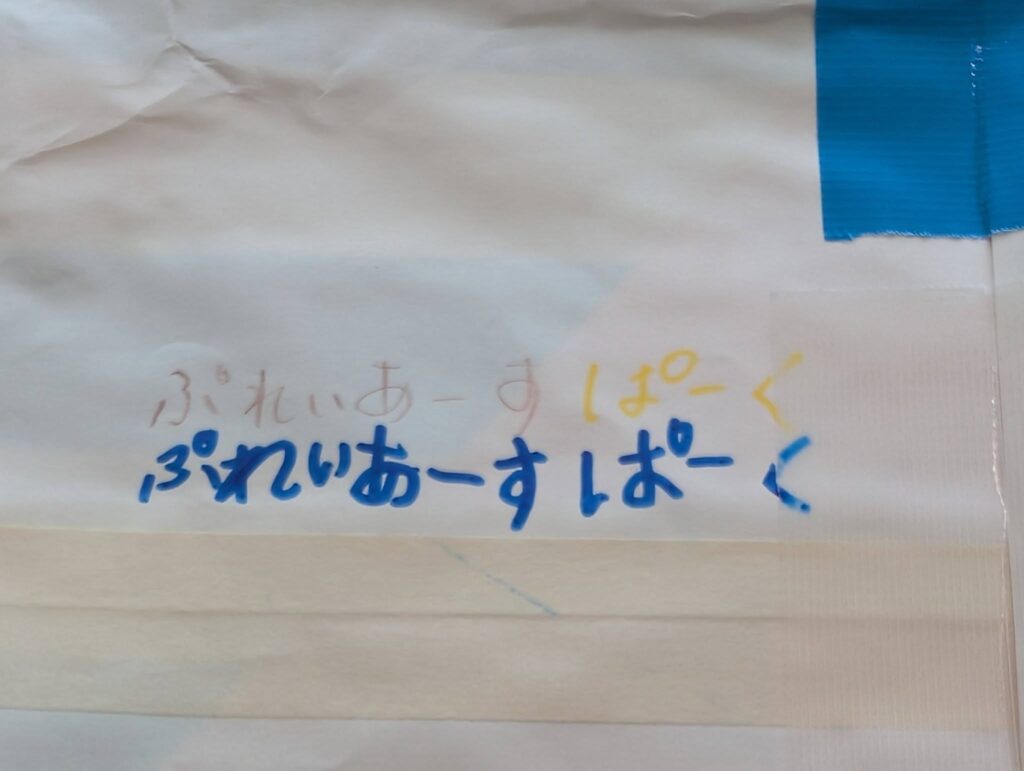 ぷれぃあーす ぱーく
ぷれぃあーす ぱーく